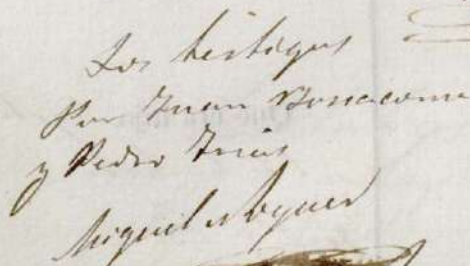 Los testigos
Por Juan Bonacome
y Pedro Trias
Miguel Noguer